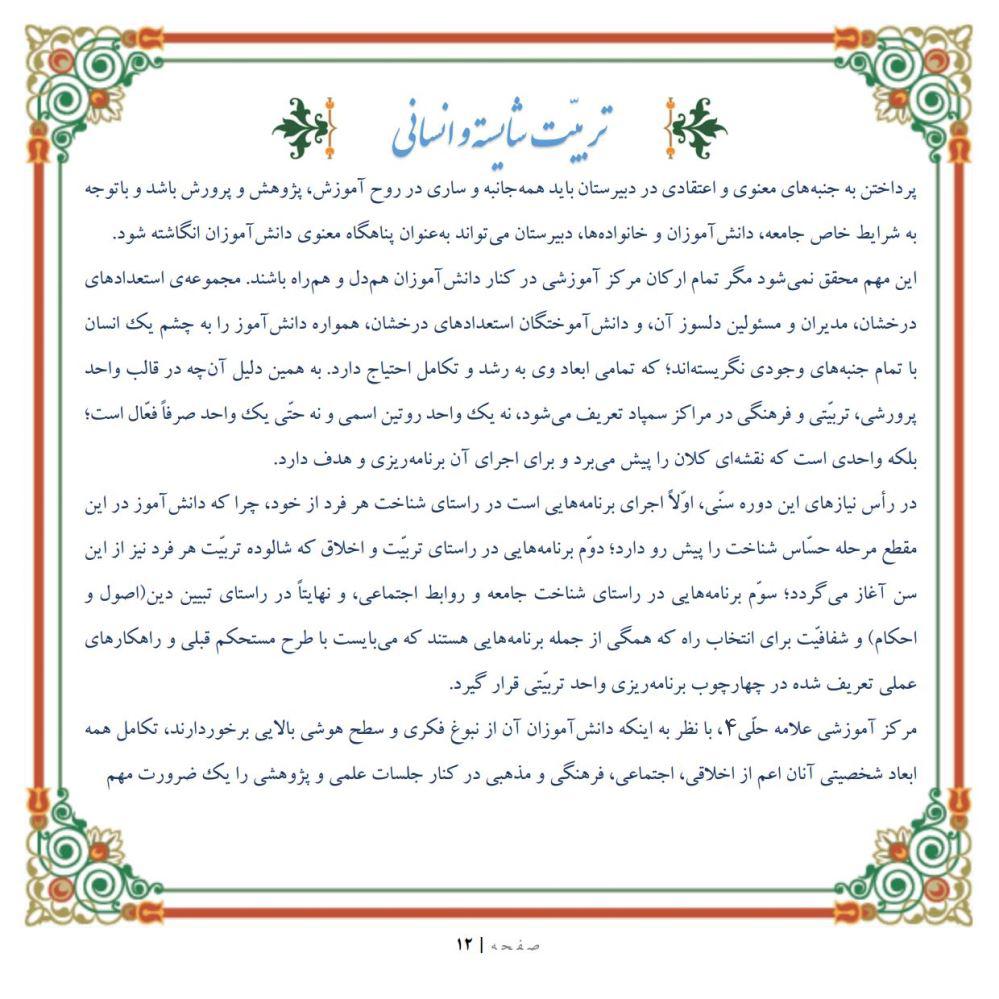 تربیّت شایسته و انسانی
پرداختن به جنبه‌های معنوی و اعتقادی در دبیرستان باید همه‌جانبه و ساری در روح آموزش، پژوهش و پرورش باشد و باتوجه
به شرایط خاص جامعه، دانش‌آموزان و خانواده‌ها، دبیرستان می‌تواند به‌عنوان پناهگاه معنوی دانش‌آموزان انگاشته شود.
این مهم محقق نمی‌شود مگر تمام ارکان مرکز آموزشی در کنار دانش‌آموزان هم‌دل و هم‌راه باشند. مجموعه‌ی استعدادهای
درخشان، مدیران و مسئولین دلسوز آن، و دانش‌آموختگان استعدادهای درخشان، همواره دانش‌آموز را به چشم یک انسان
با تمام جنبه‌های وجودی نگریسته‌اند؛ که تمامی ابعاد وی به رشد و تکامل احتیاج دارد. به همین دلیل آن‌چه در قالب واحد
پرورشی، تربیّتی و فرهنگی در مراکز سمپاد تعریف می‌شود، نه یک واحد روتین اسمی و نه حتّی یک واحد صرفاً فعّال است؛
بلکه واحدی است که نقشه‌ای کلان را پیش می‌برد و برای اجرای آن برنامه‌ریزی و هدف دارد.
در رأس نیازهای این دوره سنّی، اوّلاً اجرای برنامه‌هایی است در راستای شناخت هر فرد از خود، چرا که دانش‌آموز در این
مقطع مرحله حسّاس شناخت را پیش رو دارد؛ دوّم برنامه‌هایی در راستای تربیّت و اخلاق که شالوده تربیّت هر فرد نیز از این
سن آغاز می‌گردد؛ سوّم برنامه‌هایی در راستای شناخت جامعه و روابط اجتماعی، و نهایتاً در راستای تبیین دین(اصول و
احکام) و شفافیّت برای انتخاب راه که همگی از جمله برنامه‌هایی هستند که می‌بایست با طرح مستحکم قبلی و راهکارهای
عملی تعریف شده در چهارچوب برنامه‌ریزی واحد تربیّتی قرار گیرد.
مرکز آموزشی علامه حلّی۴، با نظر به اینکه دانش‌آموزان آن از نبوغ فکری و سطح هوشی بالایی برخوردارند، تکامل همه
ابعاد شخصیتی آنان اعم از اخلاقی، اجتماعی، فرهنگی و مذهبی در کنار جلسات علمی و پژوهشی را یک ضرورت مهم
صفحه | ۱۲